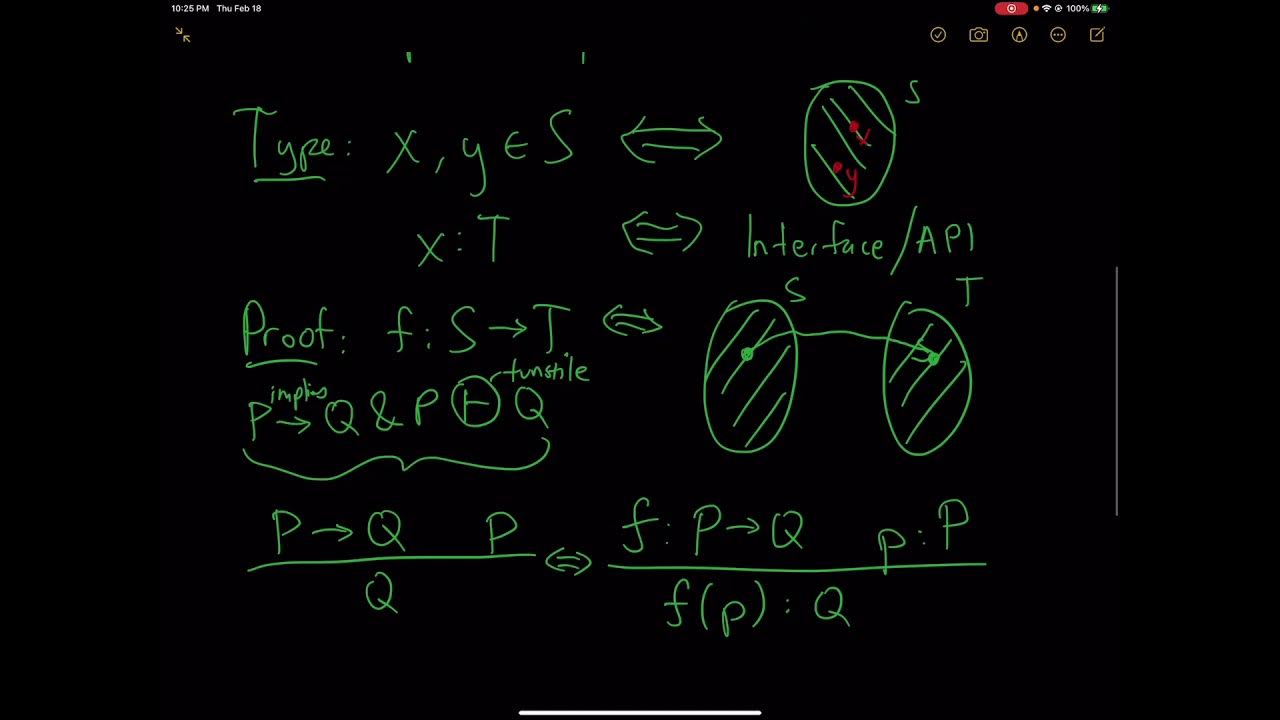 10:25 PM Thu Feb 18 100%
Type: x, y ∈ S ⟺ S
x
y
x : T ⟺ Interface/API
Proof: f : S → T ⟺ S T
implies turnstile
P → Q & P ⊢ Q
P → Q P ⟺ f : P → Q p : P
Q f(p) : Q